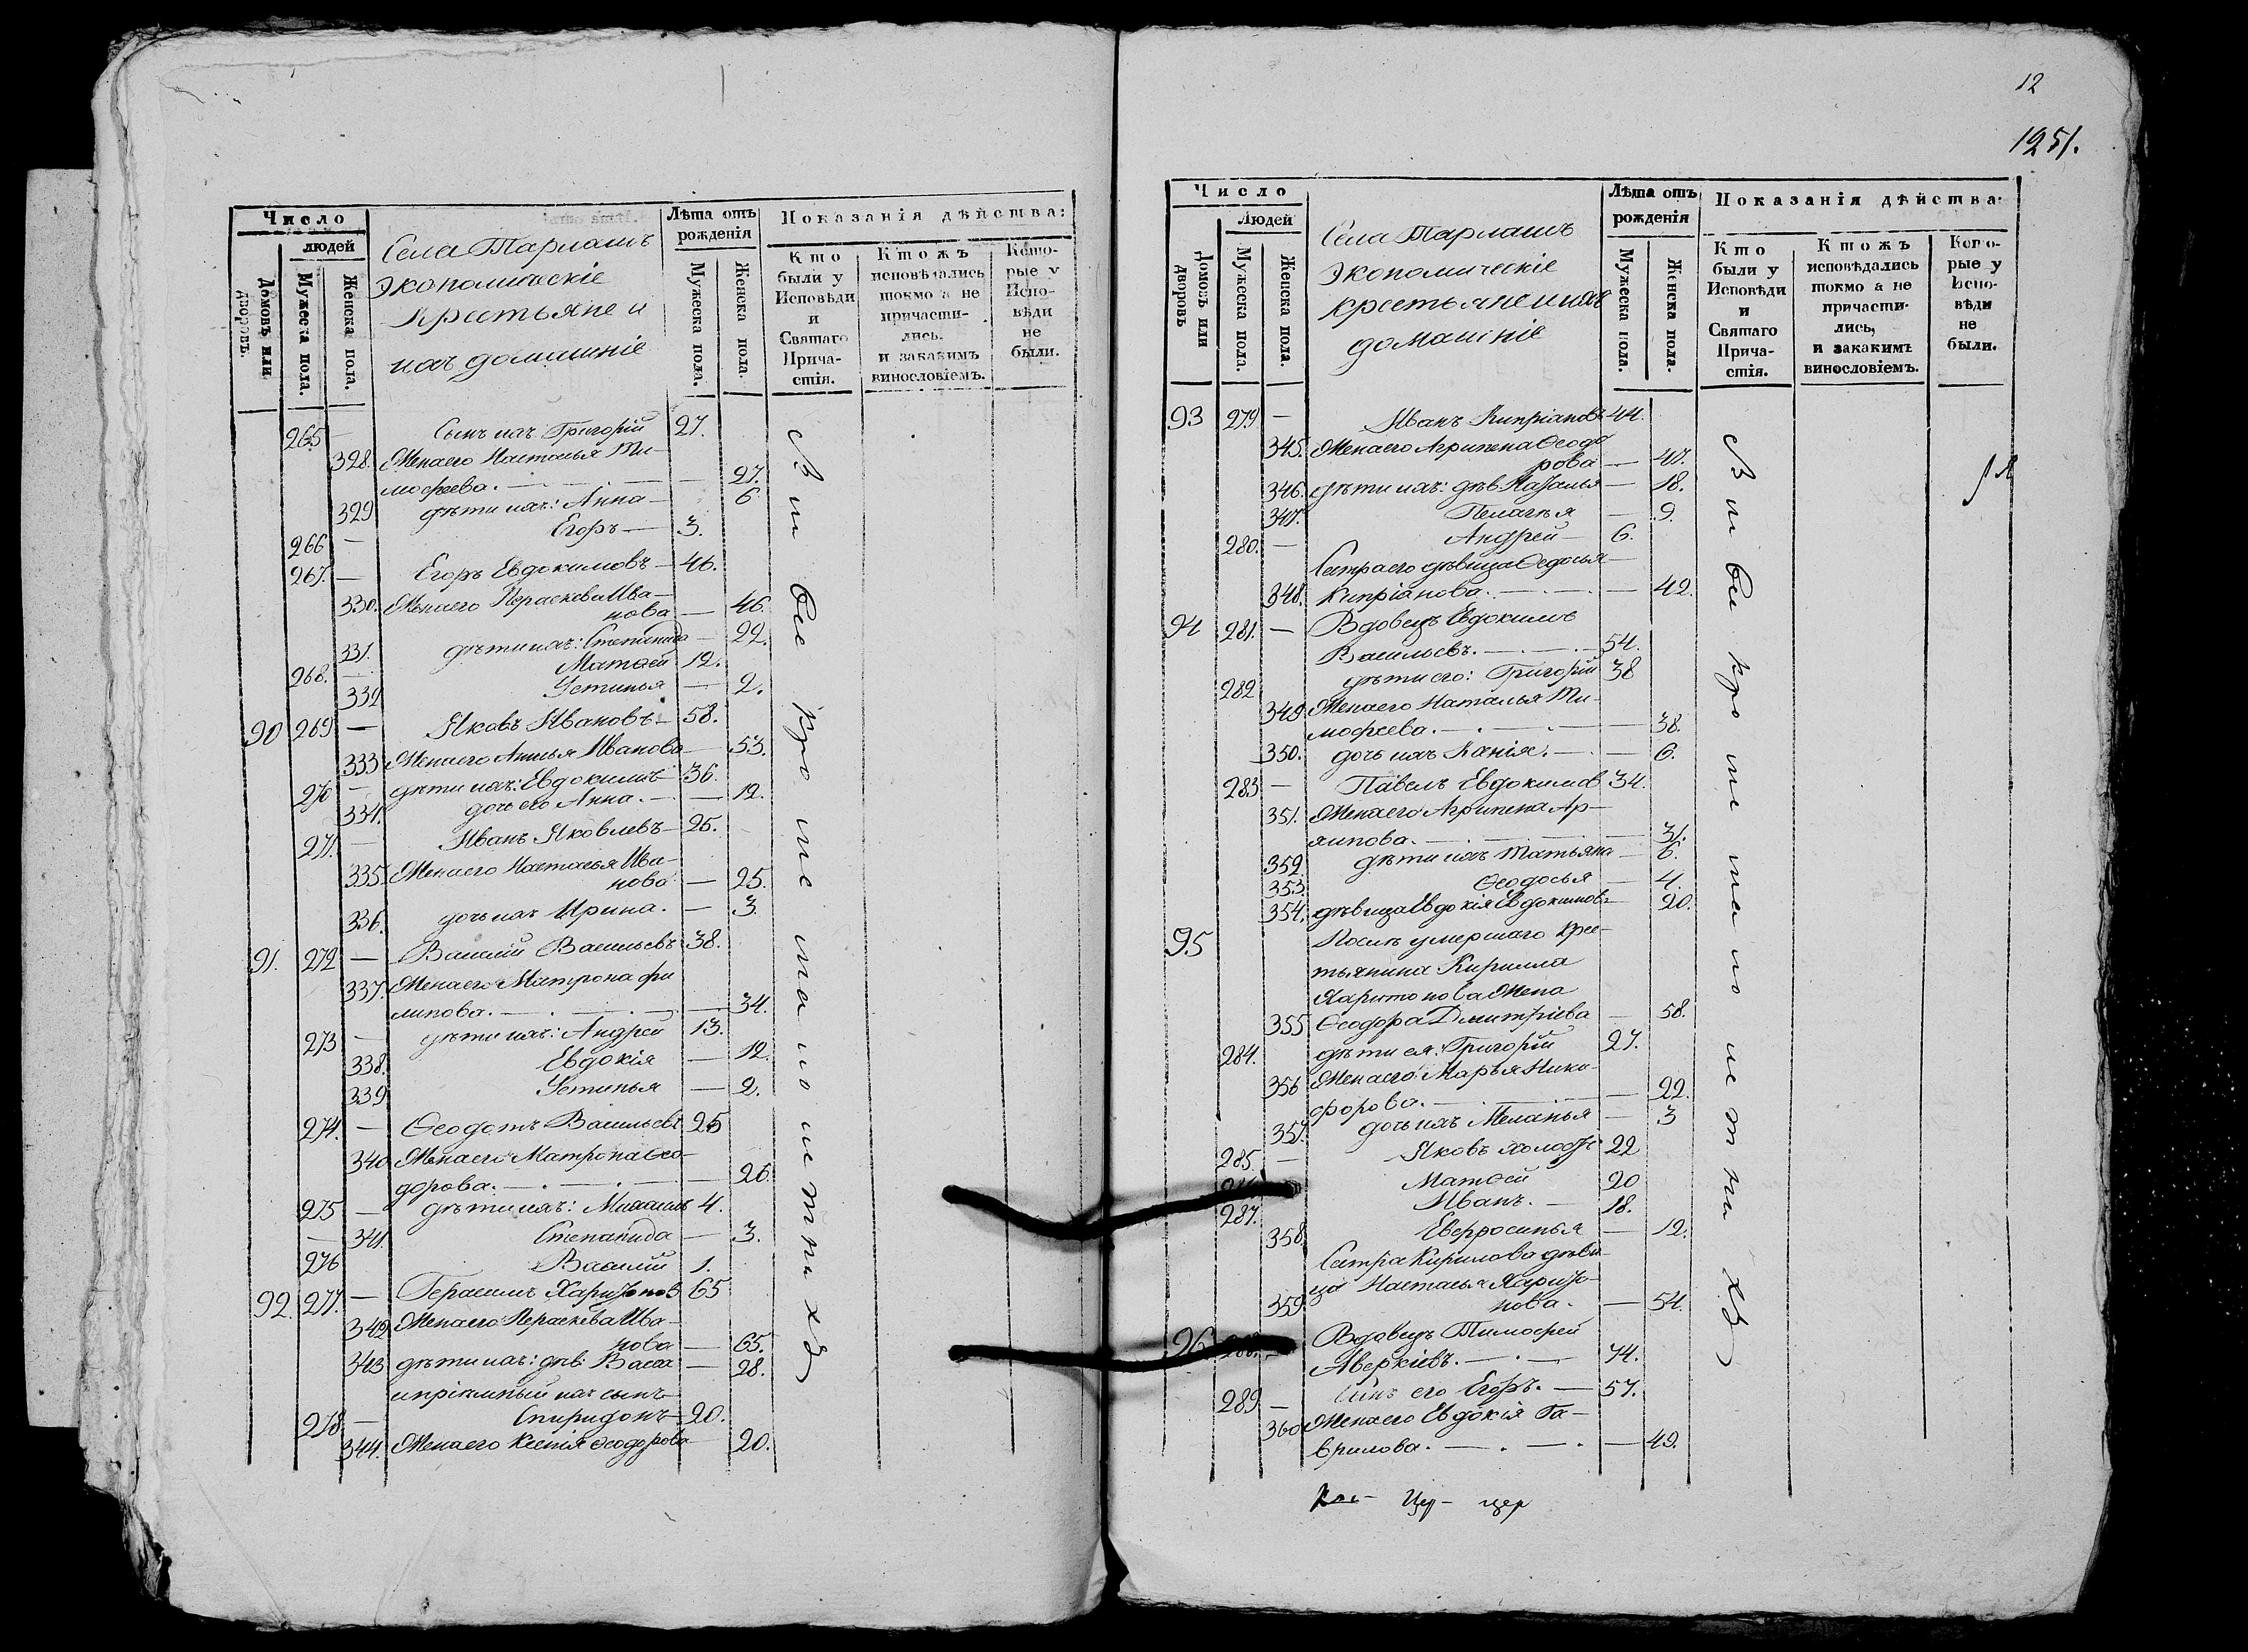 Число
людей
Домовъ или дворовъ.
Мужеска пола.
Женска пола.
Села Тарлашъ
экономическіе
крестьяне и
ихъ домашніе
Лѣта отъ рожденія
Мужеска пола.
Женска пола.
Показанія дѣйства:
Кто были у Исповѣди и Святаго Прича-стія.
Ктожъ исповѣдались токмо а не причасти-лись. и закакимъ винословіемъ.
Кото-рые у Испо-вѣди не были.
265 — Сынъ ихъ Григорій 27.
328. Жена его Настасья Ти-
мофеева. — 27.
329 дѣти ихъ: Анна — 6
266 — Егоръ — 3.
267. — Егоръ Евдокимовъ — 46.
330. Жена его Параскева Ива-
нова — 46.
331. дѣти ихъ: Степанида — 22.
268. — Матѳей 12.
332 Устинья — 2.
90 269 — Яковъ Ивановъ — 58.
333 Жена его Анисья Иванова — 53.
270 — дѣти ихъ: Евдокимъ — 36.
334. дочь его Анна. — 12.
271. — Иванъ Яковлевъ — 25.
335. Жена его Настасья Ива-
нова — 25.
336. дочь ихъ Ирина. — 3.
91. 272 — Василій Васильевъ 38.
337. Жена его Матрона Фи
липова. — 34.
273 — дѣти ихъ: Андрей 13.
338. Евдокія — 12.
339. Устинья — 2.
274. — Ѳеодотъ Васильевъ 25
340 Жена его Матрона Ѳео-
дорова. — 26.
275 — дѣти ихъ: Михаилъ 4.
— 341. Степанида — 3.
276 Василій 1.
92. 277. — Герасимъ Харитоновъ 65
342 Жена его Параскева Ива-
нова — 65.
343 дѣти ихъ: дѣв: Васса — 28.
и пріемный ихъ сынъ
278 — Спиридонъ — 20.
344. Жена его Ксенія Ѳеодорова 20.
12
1251.
Число
Людей
Домовъ или дворовъ
Мужеска пола.
Женска пола.
Села Тарлашъ
экономическіе
крестьяне и ихъ
домашніе
Лѣта отъ рожденія
Мужеска пола.
Женска пола.
Показанія дѣйства:
Кто были у Исповѣди и Святаго Прича-стія.
Ктожъ исповѣдались токмо а не причасти-лись, и закакимъ винословіемъ.
Кото-рые у Испо-вѣди не были.
93 279 — Иванъ Кипріановъ 44.
345. Жена его Агрипена Ѳеодо
рова — 47.
346. дѣти ихъ: дѣв. Наталья — 18.
347. Пелагья — 9.
280. — Андрей — 6.
Сестра его дѣвица Ѳедосья —
348. Кипріанова. — 42.
94 281. — Вдовецъ Евдокимъ
Васильевъ. — 54.
282 дѣти его: Григорій 38
349 Жена его Наталья Ти-
мофеева. — 38.
350. дочь ихъ — 6.
283 — Павелъ Евдокимов 34.
351. Жена его Агрипена Ар-
хипова. — 31.
352. дѣти ихъ Татьяна — 6.
353 Ѳеодосья — 4.
354. дѣвица Евдокія Евдокимов — 20.
95 Послѣ умершаго кре-
стьянина Кирилла
Харитонова Жена
355 Ѳеодора Дмитріева — 58.
284. дѣти ея: Григорій 27.
356 Жена его: Марья Ники-
форова. — 22.
357. дочь ихъ Меланья — 3
285 — Яковъ холостъ 22
Матѳей 20
287. Иванъ. — 18.
358. Евфросинья — 12.
Сестра Кирилова дѣви
ца Настасья Харито-
359 нова. — 54.
96. 288. — Вдовецъ Тимофей
Аверкіевъ. — 74.
289 — Сынъ его Егоръ. — 57.
360 Жена его Евдокія Га-
врилова. — 49.